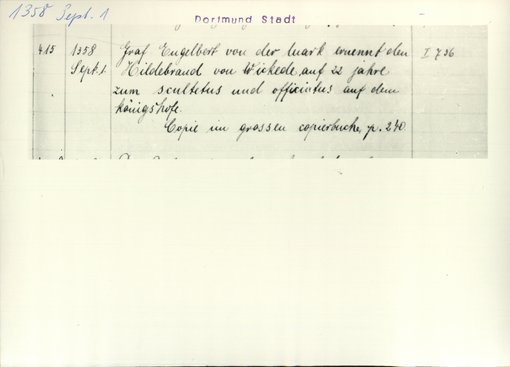 1358 Sept. 1
Dortmund Stadt
415 1358 Graf Engelbert von der Mark ernennt den I 736
Sept. 1 Hildebrand von Wickede auf 22 jahre
zum scultetus und officiatus auf dem
königshofe.
Copie im grossen copierbuche p. 240.